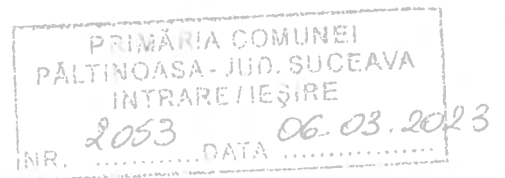 PRIMĂRIA COMUNEI
PĂLTINOASA - JUD. SUCEAVA
INTRARE / IEȘIRE
NR. 2053 DATA 06.03.2023